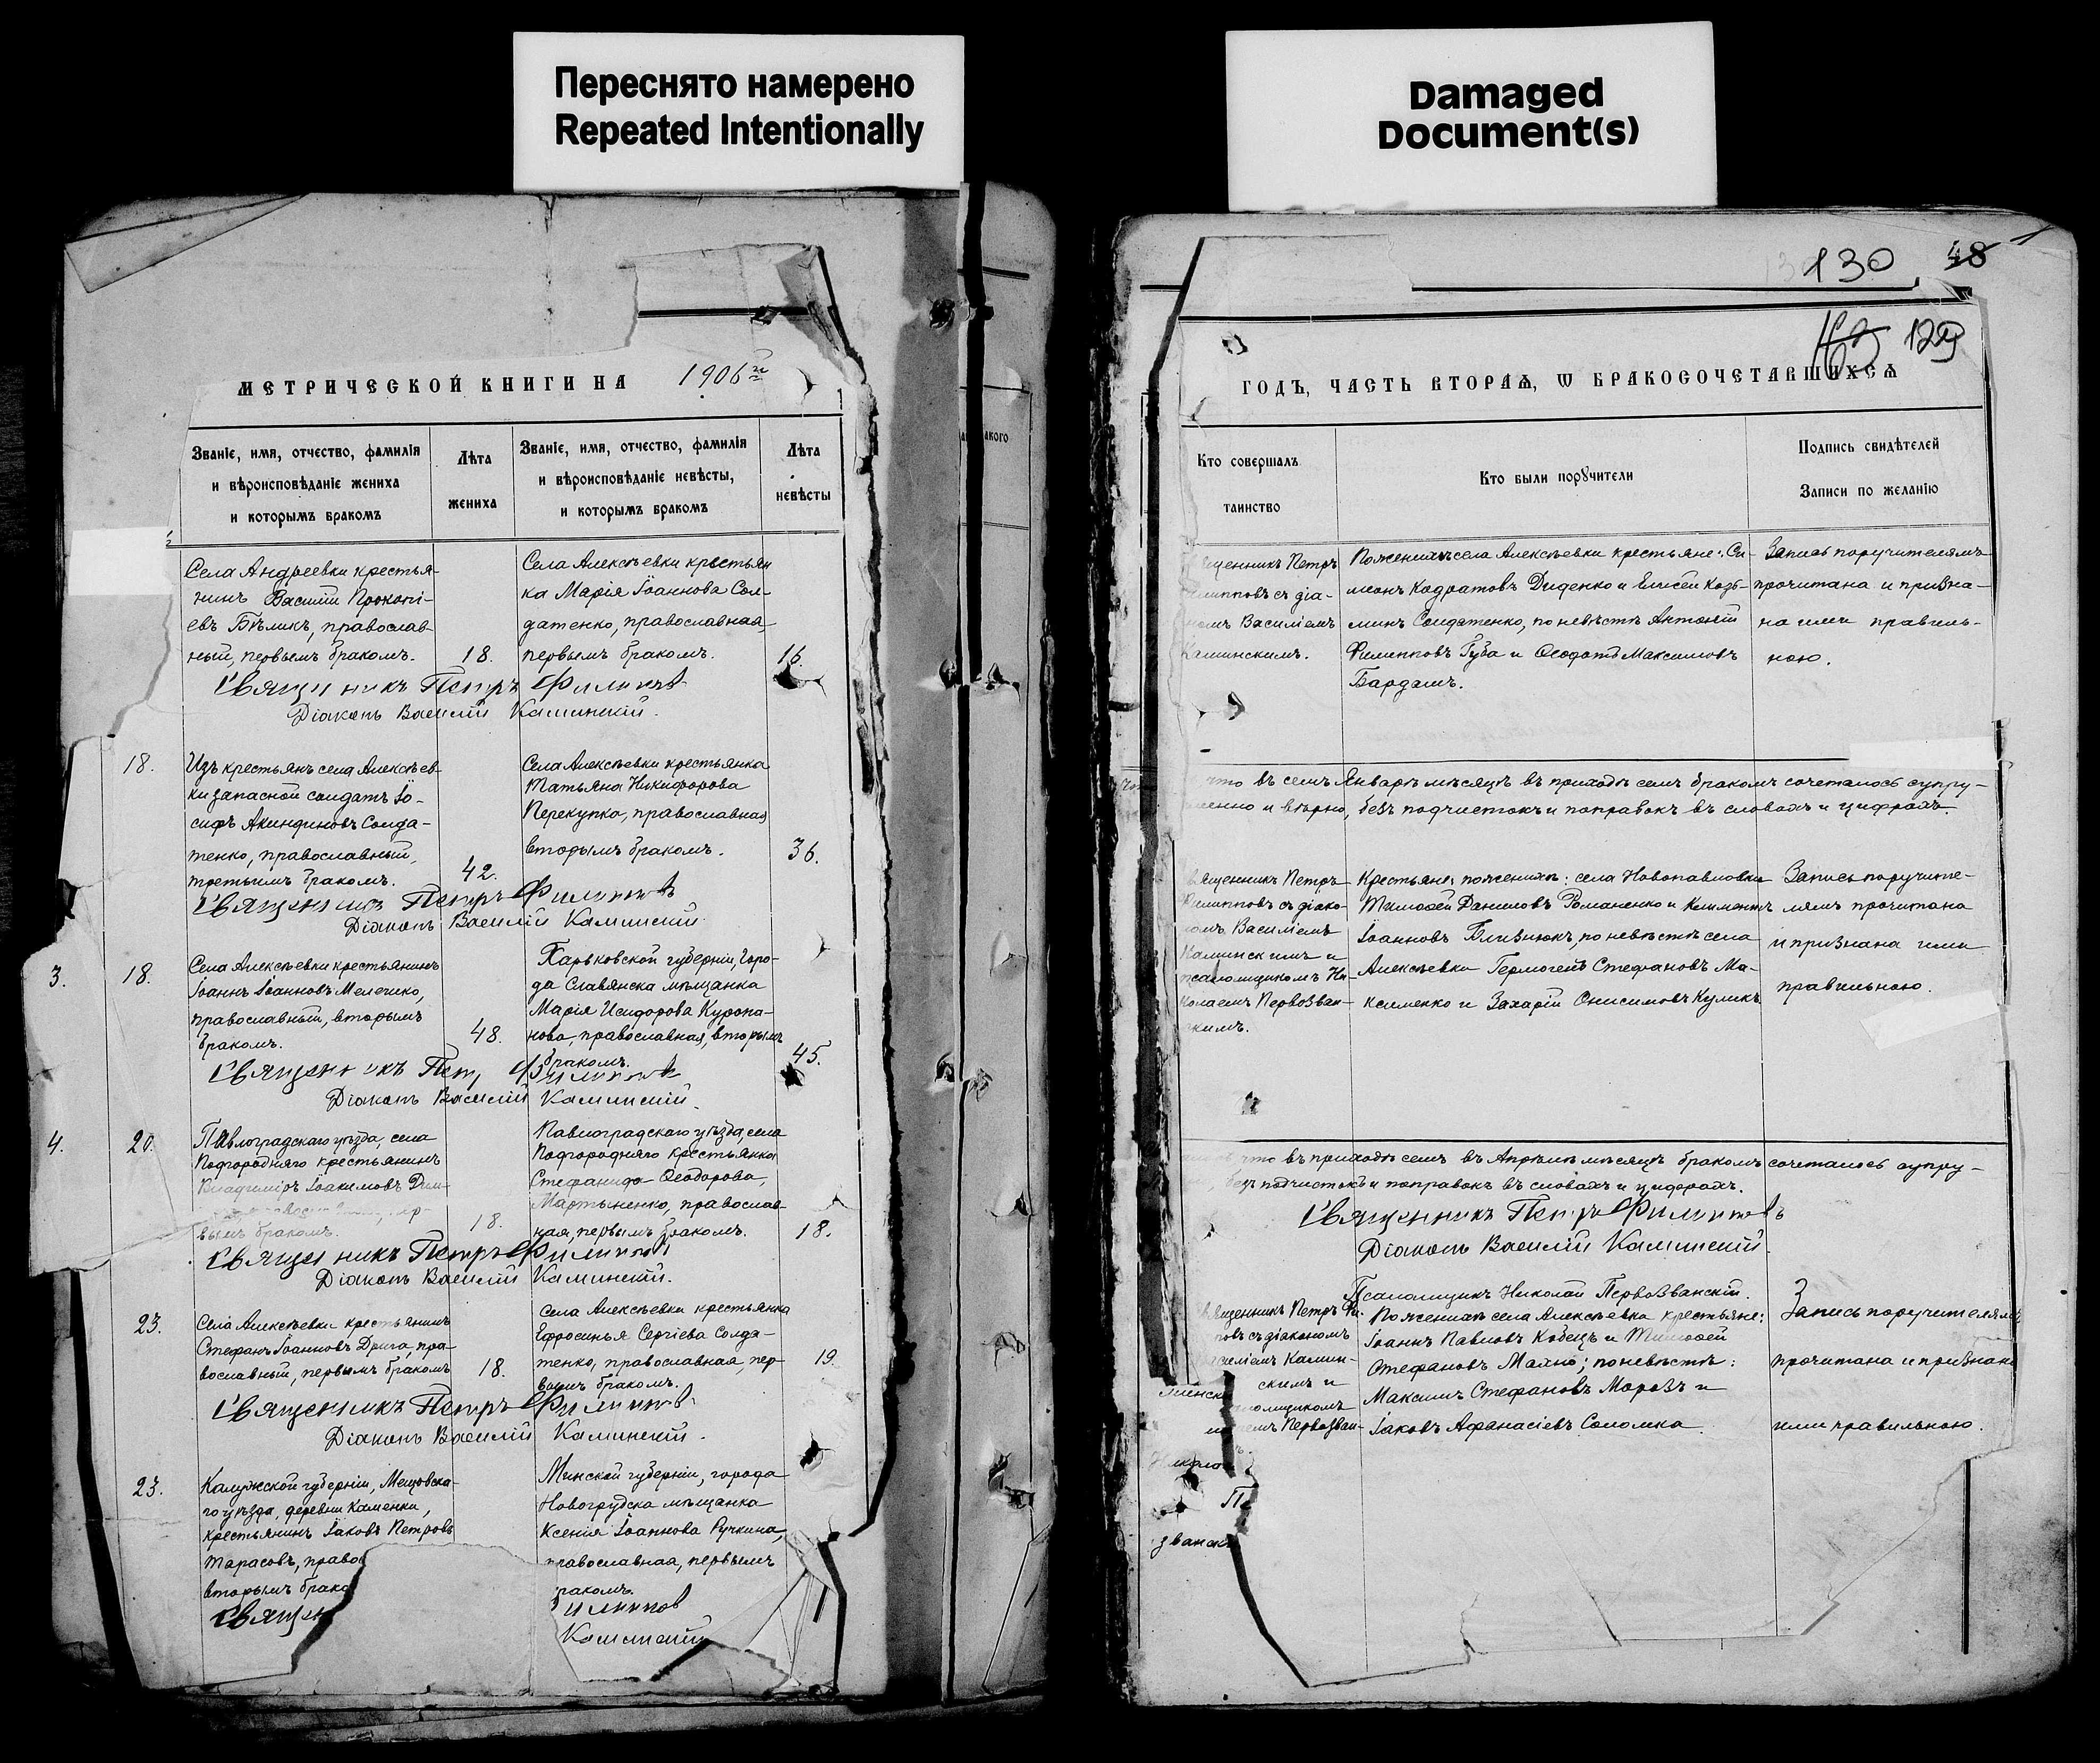 Переснято намерено
Repeated Intentionally
Damaged
Document(s)
МЕТРИЧЕСКОЙ КНИГИ НА 1906 й
Званіе, имя, отчество, фамилія
и вѣроисповѣданіе жениха
и которымъ бракомъ
Лѣта
жениха
Званіе, имя, отчество, фамилія
и вѣроисповѣданіе невѣсты,
и которымъ бракомъ
Лѣта
невѣсты
Села Андреевки крестья-
нинъ Василій Прокопі-
евъ Бѣликъ, православ-
ный, первымъ бракомъ.
18.
Села Алексѣевки крестьян
ка Марія Іоаннова Сол-
датенко, православная,
первымъ бракомъ.
16.
Священникъ Петръ Филиповъ
Діаконъ Василій Каминскій.
18.
Изъ крестьянъ села Алексѣев-
ки запасной солдатъ Іо-
сифъ Акиндиновъ Солда-
тенко, православный,
третьимъ бракомъ.
42.
Села Алексѣевки крестьянка
Татьяна Никифорова
Перекупка, православная
вторымъ бракомъ.
36.
Священникъ Петръ Филиповъ
Діаконъ Василій Каминскій
3.
18.
Села Алексѣевки крестьянинъ
Іоаннъ Іоанновъ Мелешко,
православный, вторымъ
бракомъ.
48.
Харьковской губерніи, горо-
да Славянска мѣщанка
Марія Исидорова Куропа-
нова, православная, вторымъ
бракомъ.
45.
Священникъ Петръ Филиповъ
Діаконъ Василій Каминскій.
4.
20.
Павлоградскаго уѣзда, села
Подгородняго крестьянинъ
Владиміръ Іоакимовъ
вымъ бракомъ.
18.
Павлоградскаго уѣзда, села
Подгородняго крестьянка
Стефанида Ѳеодорова,
Мартыненко, православ-
ная, первымъ бракомъ.
18.
Священникъ Петръ Филиповъ
Діаконъ Василій Каминскій.
23.
Села Алексѣевки крестьянинъ
Стефанъ Іоанновъ Дрига, пра-
вославный, первымъ бракомъ
18.
Села Алексѣевки крестьянка
Ефросинья Сергіева Солда-
тенко, православная, пер-
вымъ бракомъ.
19.
Священникъ Петръ Филиповъ
Діаконъ Василій Каминскій.
23.
Калужской губерніи, Мещовска-
го уѣзда, деревни Каменки,
крестьянинъ Іаковъ Петровъ
Тарасовъ, право
вторымъ брако
Минской губерніи, города
Новогрудска мѣщанка
Ксенія Іоаннова Ручкина,
православная, первымъ
ракомъ.
Священ
илиповъ
Каминскій
130
48
129
ГОДЪ, ЧАСТЬ ВТОРАѦ, Ѡ БРАКОСОЧЕТАВШИХСѦ
Кто совершалъ
таинство
Кто были порꙋчители
Подпись свидѣтелей
Записи по желанію
щенникъ Петръ
липповъ съ діа-
номъ Василіемъ
Каминскимъ.
По женихѣ села Алексѣевки крестьяне: Си-
меонъ Кодратовъ Диденко и Елисей Козь-
минъ Солдатенко, по невѣстѣ Антоній
Филипповъ Губа и Ѳеодотъ Максимовъ
Бардашъ.
Запись поручителямъ
прочитана и призна-
на ими правиль-
ною.
что въ семъ Январѣ мѣсяцѣ въ приходѣ семъ бракомъ сочеталось супру-
менно и вѣрно, безъ подчистокъ и поправокъ въ словахъ и цифрахъ.
вященникъ Петръ
Филипповъ съ діако-
номъ Василіемъ
Каминскимъ и
псаломщикомъ Ни-
колаемъ Первозван-
скимъ.
Крестьяне, по женихѣ: села Новопавловки
Тимоѳей Даниловъ Романенко и Климентъ
Іоанновъ Близнюкъ, по невѣстѣ села
Алексѣевки Гермогенъ Стефановъ Ма-
ксименко и Захарій Онисимовъ Куликъ
Запись поручите-
лямъ прочитана
и признана ими
правильною.
что въ приходѣ семъ въ Апрѣлѣ мѣсяцѣ бракомъ сочеталось супру-
безъ подчистокъ и поправокъ въ словахъ и цифрахъ.
Священникъ Петръ Филиповъ
Діаконъ Василій Каминскій.
Псаломщикъ Николай Первозванскій.
вященникъ Петръ Фи-
повъ съ діакономъ
асиліемъ Камин-
скимъ и
ломщикомъ
емъ Первозван-
По женихѣ села Алексѣевки крестьяне:
Іоаннъ Павловъ Кобецъ и Тимоѳей
Стефановъ Махно; по невѣстѣ:
Максимъ Стефановъ Морозъ и
Іаковъ Афанасіевъ Соломка.
Запись поручителямъ
прочитана и признана
ими правильною.
званск